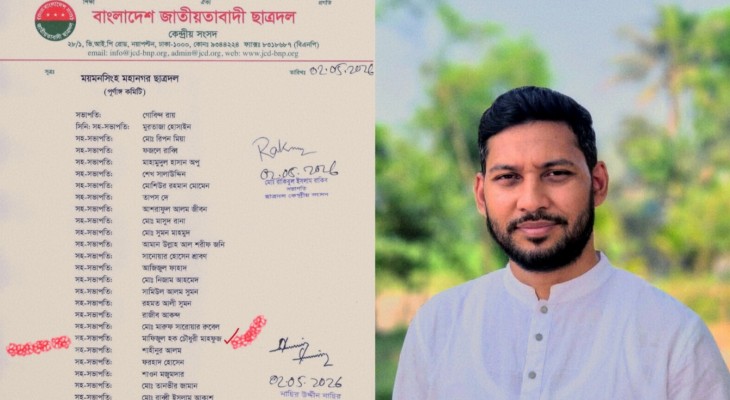 শিক্ষা ঐক্য প্রগতি
বাংলাদেশ জাতীয়তাবাদী ছাত্রদল
কেন্দ্রীয় সংসদ
২৮/১, ভি.আই.পি রোড, নয়াপল্টন, ঢাকা-১০০০, ফোনঃ ৯৩৪৪২২৪ ফ্যাক্সঃ ৮৩১৮৬৮৭ (বিএনপি)
email: info@jcd-bnp.org, admin@jcd.org, web: www.jcd-bnp.org
সূত্রঃ তারিখঃ 02.05.2026
ময়মনসিংহ মহানগর ছাত্রদল
(পূর্ণাঙ্গ কমিটি)
সভাপতি: গোবিন্দ রায়
সিনি: সহ-সভাপতি: মুরতাজা হোসাইন
সহ-সভাপতি: মোঃ রিপন মিয়া
সহ-সভাপতি: ফজলে রাব্বি
সহ-সভাপতি: মাহামুদুল হাসান অপু
সহ-সভাপতি: শেখ সালাউদ্দিন
সহ-সভাপতি: মোশিউর রহমান মোমেন
সহ-সভাপতি: তাপস দে
সহ-সভাপতি: আশরাফুল আলম জীবন
সহ-সভাপতি: মোঃ মাসুদ রানা
সহ-সভাপতি: মোঃ সুমন মাহমুদ
সহ-সভাপতি: আমান উল্লাহ আল শরীফ জনি
সহ-সভাপতি: সানোয়ার হোসেন শ্রাবণ
সহ-সভাপতি: আজিজুল ফাহাদ
সহ-সভাপতি: মোঃ নিজাম আহমেদ
সহ-সভাপতি: সামিউল আলম সুমন
সহ-সভাপতি: রহমত আলী সুমন
সহ-সভাপতি: রাজীব আকন্দ
সহ-সভাপতি: মোঃ মারুফ সারোয়ার রুবেল
সহ-সভাপতি: মাফিজুল হক চৌধুরী মাহফুজ
সহ-সভাপতি: শাহীনুর আলম
সহ-সভাপতি: ফরহাদ হোসেন
সহ-সভাপতি: শাওন মজুমদার
সহ-সভাপতি: মোঃ তানভীর জামান
সহ-সভাপতি: মোঃ রাব্বী ইসলাম আকাশ
02.05.2026
মোঃ রাকিবুল ইসলাম রাকিব
সভাপতি
ছাত্রদল কেন্দ্রীয় সংসদ
02.05.2026
নাছির উদ্দীন নাছির